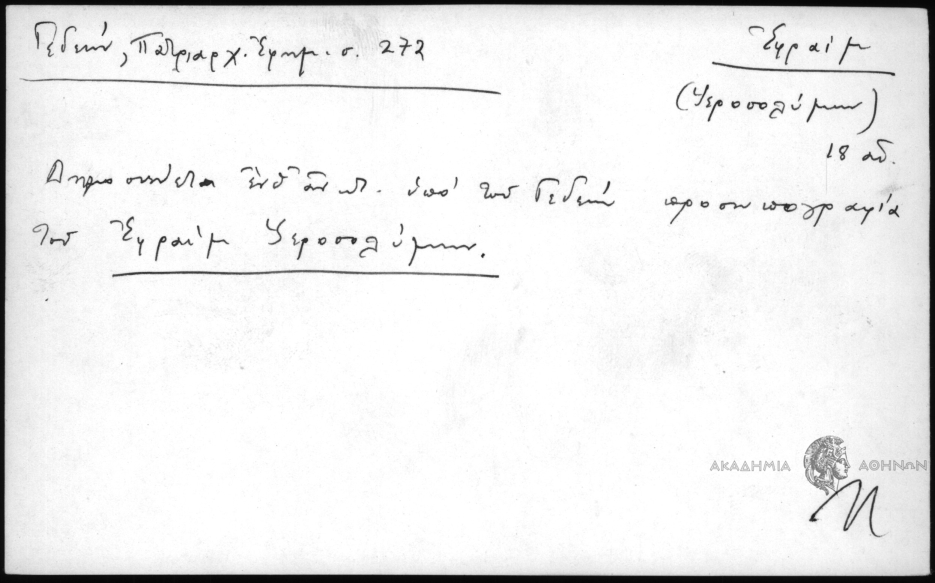 Γεδεών, Πατριαρχ. Ἐφημ. σ. 272
Ἐφραίμ
(Ἱεροσολύμων)
18 αἰ.
Δημοσιεύεται ἐνθ' ἀν. ὑπό τοῦ Γεδεών προσωπογραφία
τοῦ Ἐφραίμ Ἱεροσολύμων.
ΑΚΑΔΗΜΙΑ ΑΘΗΝΩΝ